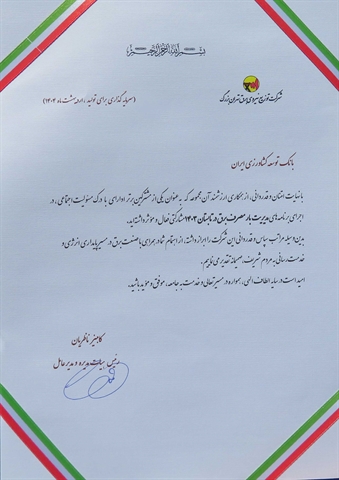 بسم الله الرحمن الرحیم
شرکت توزیع نیروی برق تهران بزرگ
(سرمایه گذاری برای تولید، اردیبهشت ماه ۱۴۰۴)
بانک توسعه کشاورزی ایران
با نهایت امتنان و قدردانی، از همکاری ارزشمند آن مجموعه که به عنوان یکی از مشترکین برتر ادارای با درک مسئولیت اجتماعی، در
اجرای برنامه‌های مدیریت بار مصرف برق در تابستان ۱۴۰۳ مشارکتی فعال و مؤثر داشته‌اید.
بدین وسیله مراتب سپاس و قدردانی این شرکت را ابراز داشته، از اهتمام شما در همراهی با صنعت برق در مسیر پایداری انرژی و
خدمت رسانی به مردم شریف، صمیمانه تقدیر می نماییم.
امید است در سایه الطاف الهی، همواره در مسیر تعالی و خدمت به جامعه، موفق و مؤید باشید.
کامبیز ناظریان
رئیس هیات مدیره و مدیرعامل